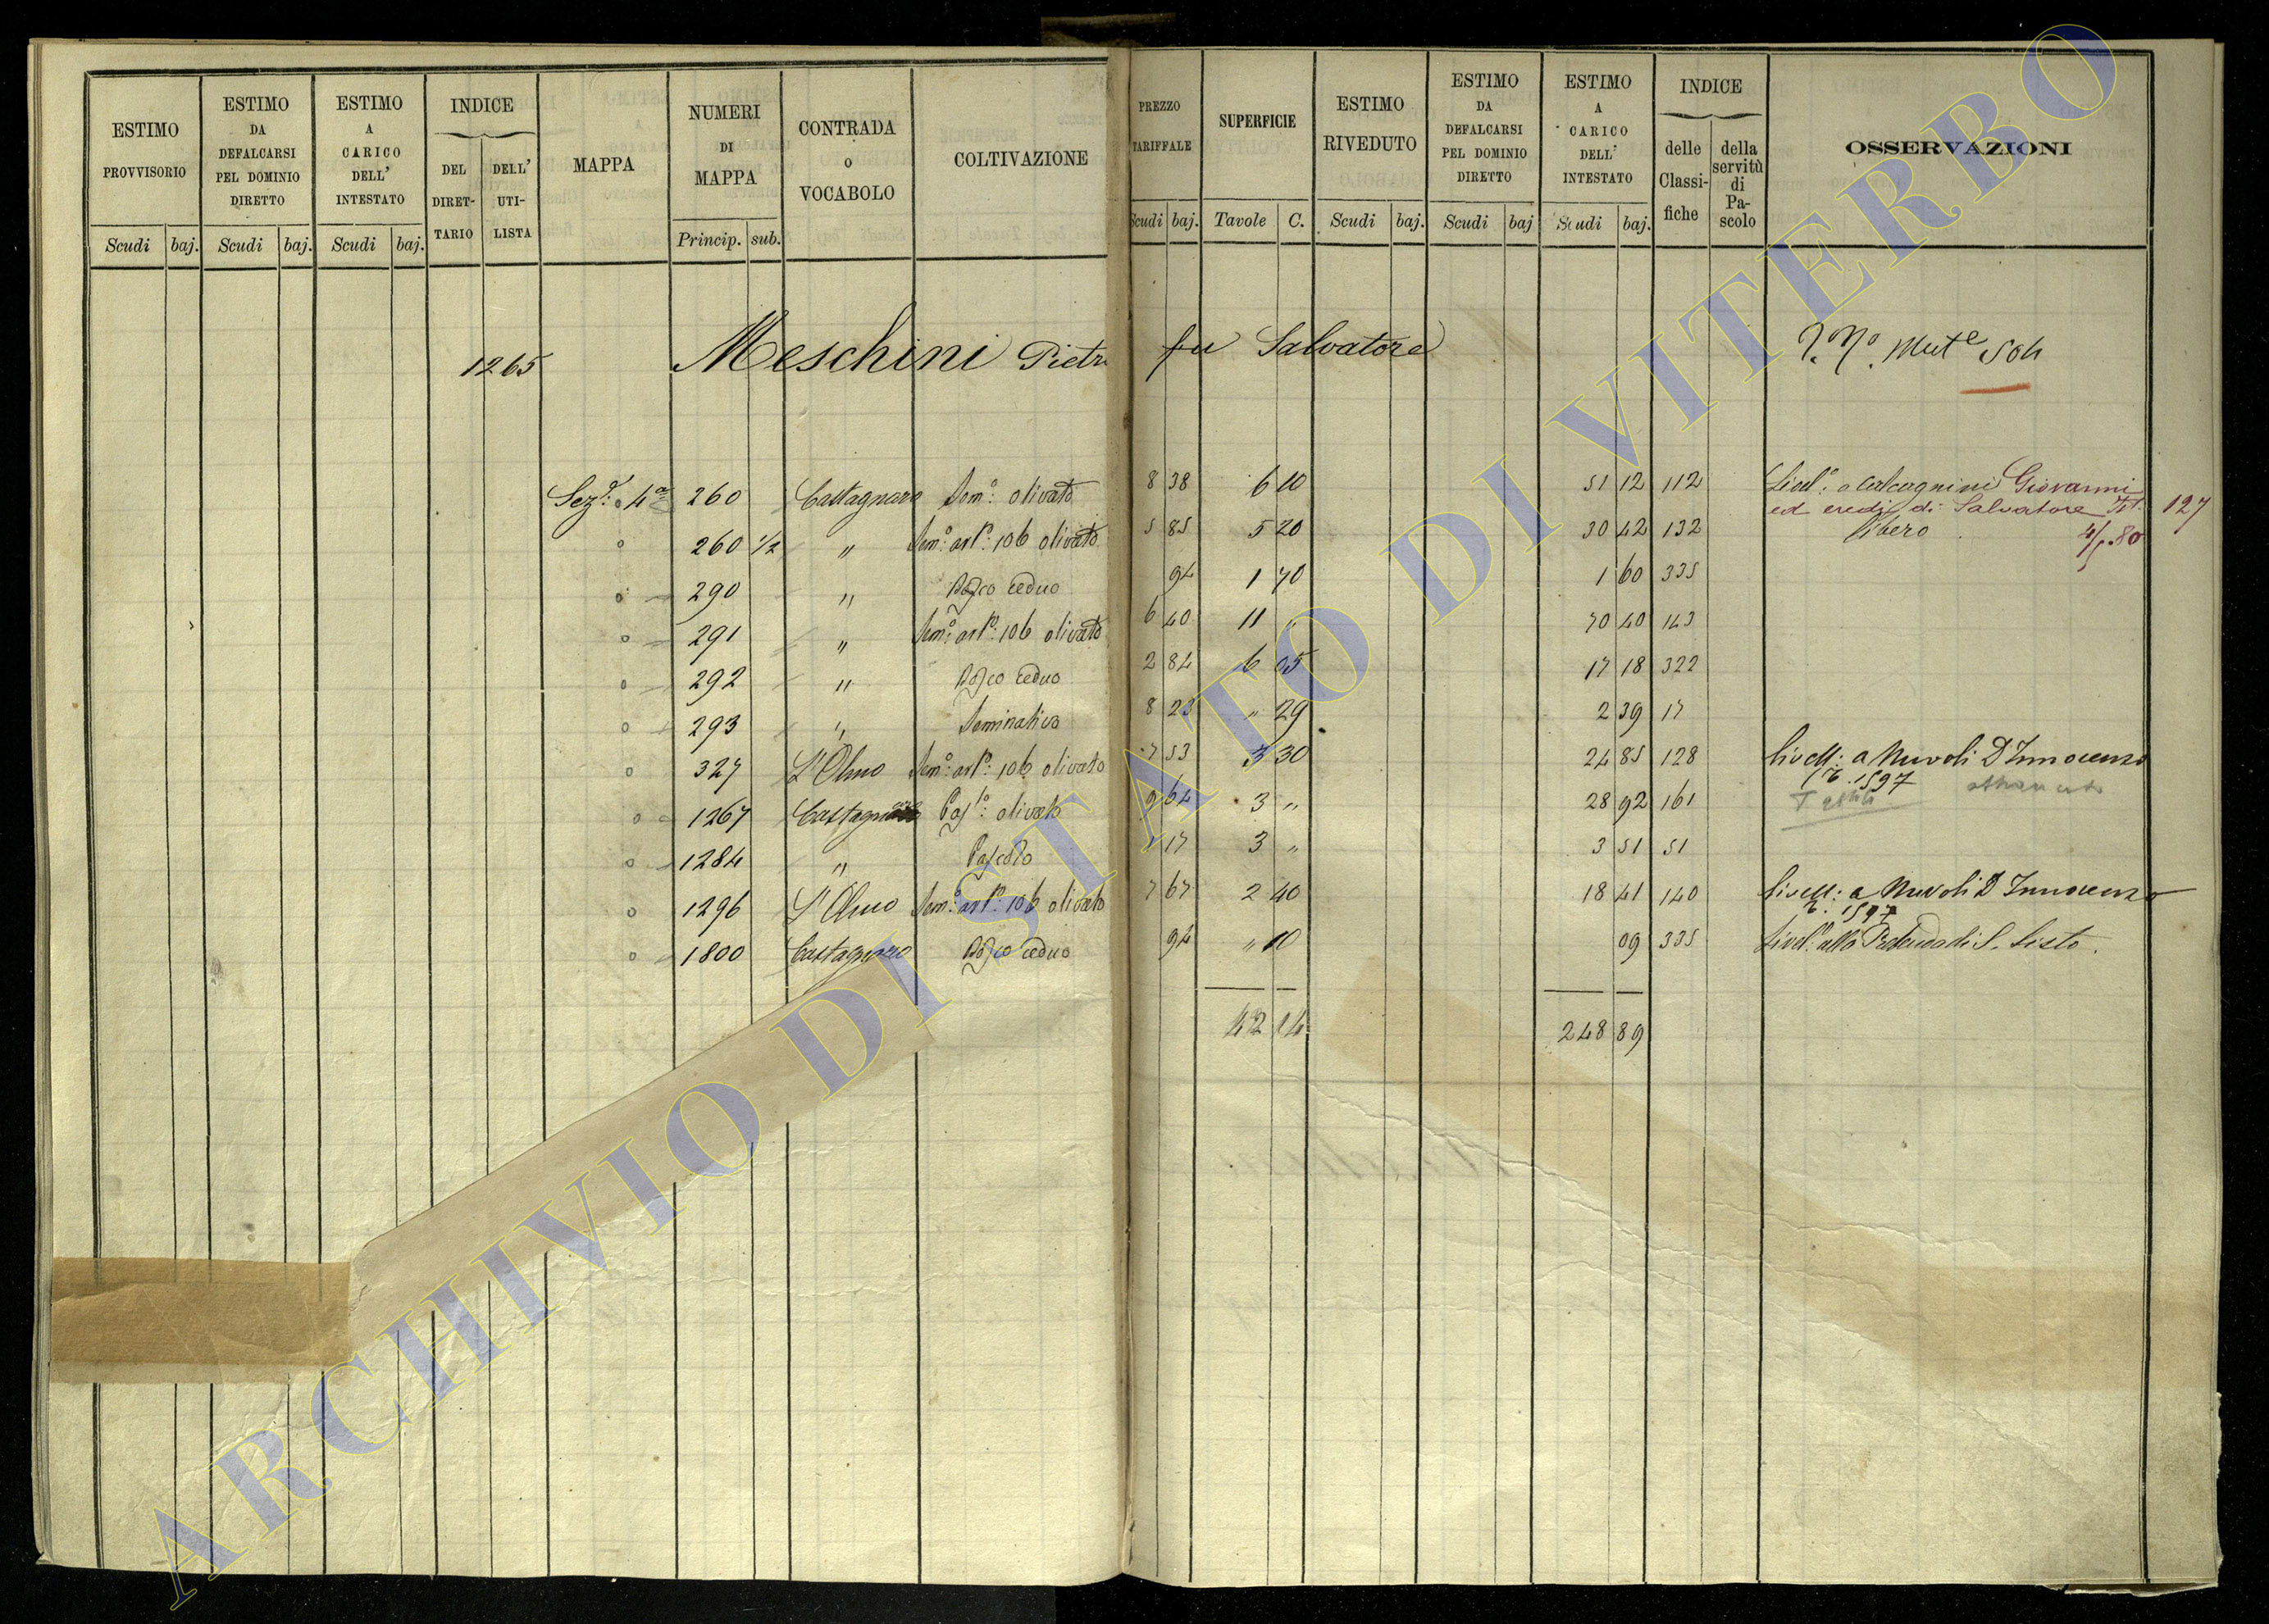 ESTIMO PROVVISORIO
ESTIMO DA DEFALCARSI PEL DOMINIO DIRETTO
ESTIMO A CARICO DELL' INTESTATO
INDICE
DEL DIRET- TARIO
DELL' UTI- LISTA
MAPPA
NUMERI DI MAPPA
CONTRADA o VOCABOLO
COLTIVAZIONE
PREZZO TARIFFALE
SUPERFICIE
ESTIMO RIVEDUTO
ESTIMO DA DEFALCARSI PEL DOMINIO DIRETTO
ESTIMO A CARICO DELL' INTESTATO
INDICE
delle Classi- fiche
della servitù di Pa- scolo
OSSERVAZIONI
Scudi baj. Scudi baj. Scudi baj. Princip. sub. Scudi baj. Tavole C. Scudi baj. Scudi baj Scudi baj.
1265 Meschini Pietro fu Salvatore
Sez: 4a 260 Castagnaro Sem: olivato 8 38 6 10 51 12 112 Livel: a Calcagnini Giovanni
ed eredi di Salvatore 127
260 1/2 " Sem: art: 106 olivato 5 85 5 20 30 42 132 libero
290 " Bosco ceduo 94 1 70 1 60 335
291 " Sem: art: 106 olivato 6 40 11 " 70 40 143
292 " Bosco ceduo 2 84 6 05 17 18 322
293 " Seminativo 8 23 " 29 2 39 17
327 L'Olmo Sem: art: 106 olivato 7 53 3 30 24 85 128 livell: a Nuvoli D Innocenzo
1597
1267 Pas: olivato 9 64 3 " 28 92 161
1284 " Pascolo 1 17 3 " 3 51 51
1296 L'Olmo Sem: art: 106 olivato 7 67 2 40 18 41 140 livell: a Nuvoli D Innocenzo
1597
1800 Castagnaro Bosco ceduo 94 " 10 09 335 Livel: alla Prebenda di S. Sisto.
42 14 248 89
ARCHIVIO DI STATO DI VITERBO